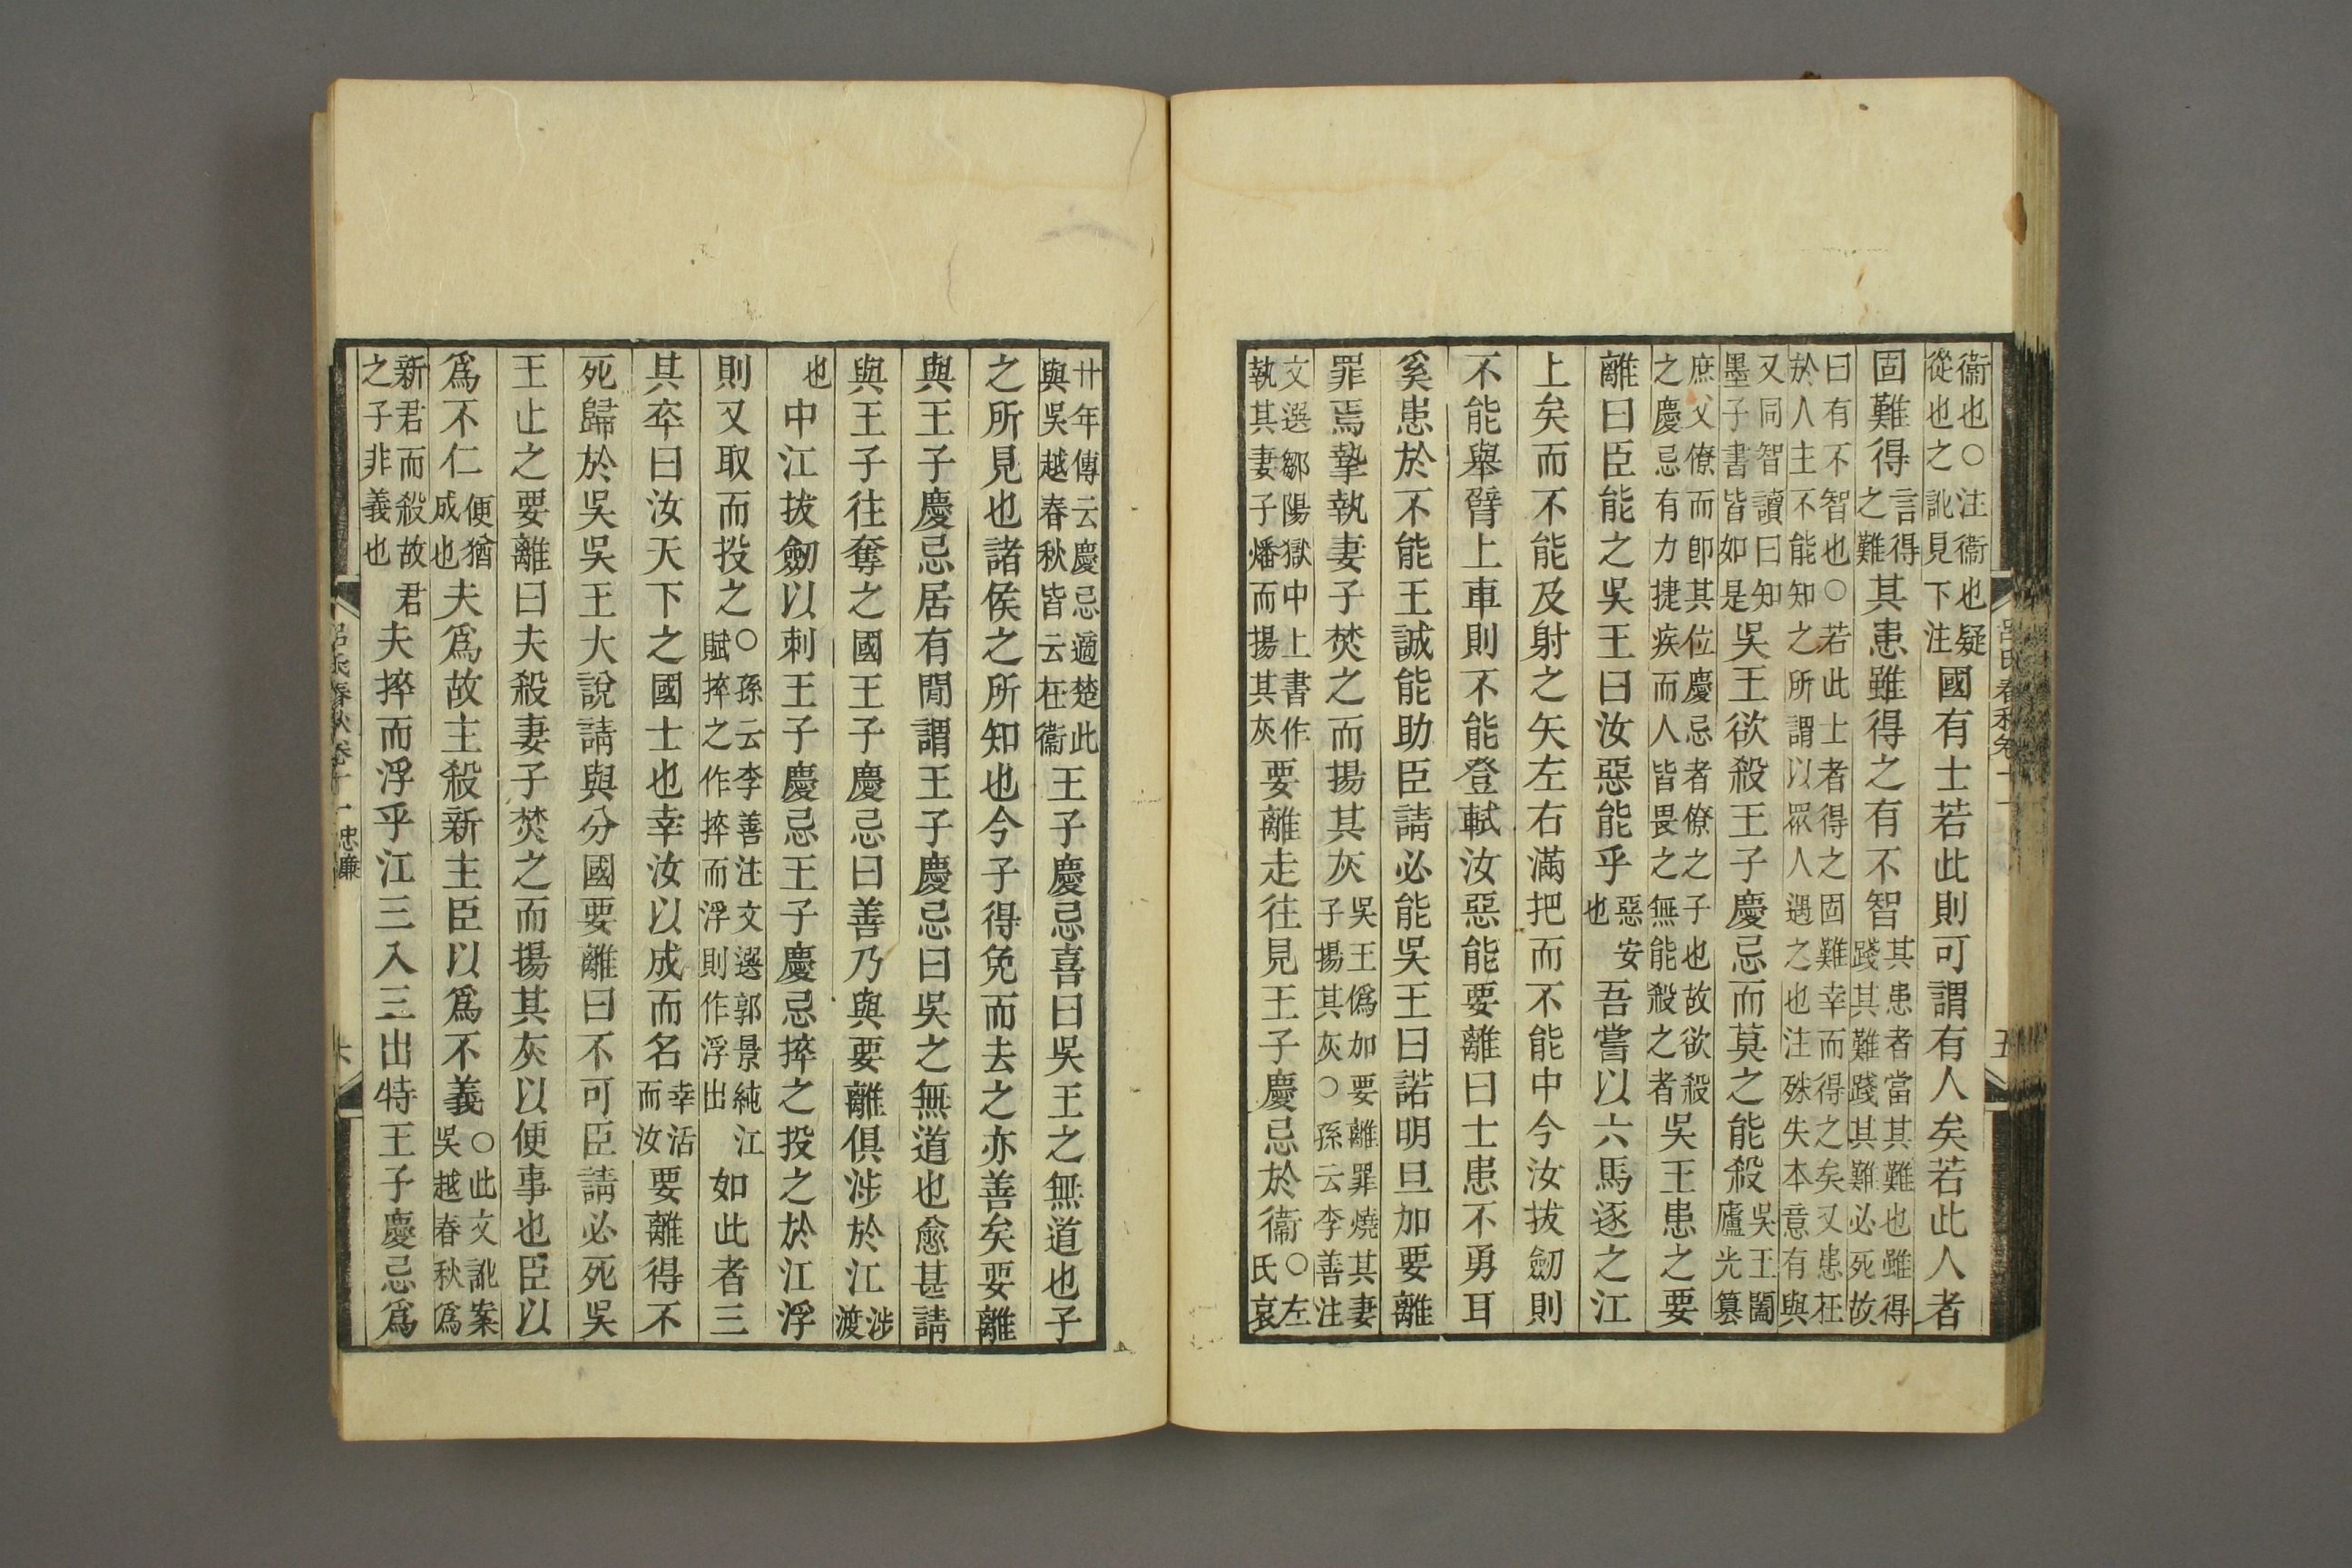 呂氏春秋卷十一 五
衞也○注衞也疑從也之訛見下注國有士若此則可謂有人矣若此人者
固難得言得之難其患雖得之有不智其患者當其難也雖得踐其難踐其難必死故
曰有不智也○若此士者得之固難幸而得之矣又患在於人主不能知之所謂以眾人遇之也注殊失本意有與
又同智讀曰知墨子書皆如是吳王欲殺王子慶忌而莫之能殺吳王闔廬光篡
庶父僚而卽其位慶忌者僚之子也故欲殺之慶忌有力捷疾而人皆畏之無能殺之者吳王患之要
離曰臣能之吳王曰汝惡能乎惡安也吾嘗以六馬逐之江
上矣而不能及射之矢左右滿把而不能中今汝拔劒則
不能舉臂上車則不能登軾汝惡能要離曰士患不勇耳
奚患於不能王誠能助臣請必能吳王曰諾明旦加要離
罪焉摯執妻子焚之而揚其灰吳王僞加要離罪燒其妻子揚其灰○孫云李善注
文選鄒陽獄中上書作執其妻子燔而揚其灰要離走往見王子慶忌於衞○左氏哀
廿年傳云慶忌適楚此與吳越春秋皆云在衞王子慶忌喜曰吳王之無道也子
之所見也諸侯之所知也今子得免而去之亦善矣要離
與王子慶忌居有閒謂王子慶忌曰吳之無道也愈甚請
與王子往奪之國王子慶忌曰善乃與要離俱涉於江涉渡
也中江拔劒以刺王子慶忌王子慶忌捽之投之於江浮
則又取而投之○孫云李善注文選郭景純江賦捽之作捽而浮則作浮出如此者三
其卒曰汝天下之國士也幸汝以成而名幸活而汝要離得不
死歸於吳吳王大說請與分國要離曰不可臣請必死吳
王止之要離曰夫殺妻子焚之而揚其灰以便事也臣以
爲不仁便猶成也夫爲故主殺新主臣以爲不義○此文訛案吳越春秋爲
新君而殺故君之子非義也夫捽而浮乎江三入三出特王子慶忌爲
呂氏春秋卷十一 忠廉 六